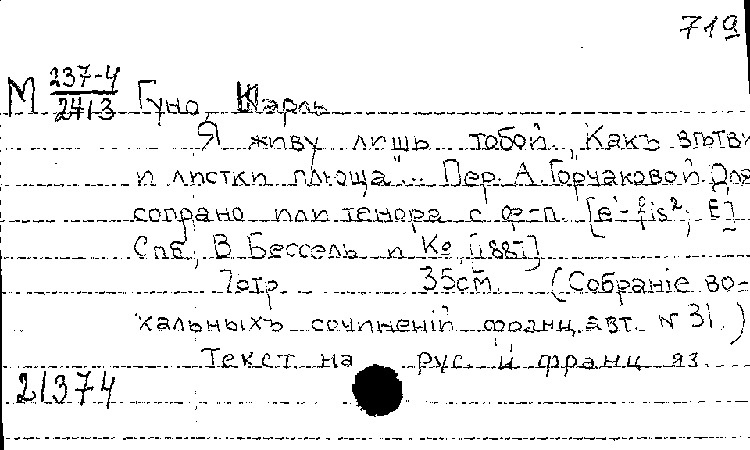 719
М 237-4 Гуно, Шарль
2413
Я живу лишь тобой. „Какъ вѣтви
и листки плюща"... Пер. А. Горчаковой. Для
сопрано или тенора с ф-п. [e'-fis²; E]
Спб, В. Бессель и Ко, [188?]
7стр. 35см. (Собраніе во-
кальныхъ сочиненій франц. авт. N 31.)
Текст на рус. и франц яз.
21374